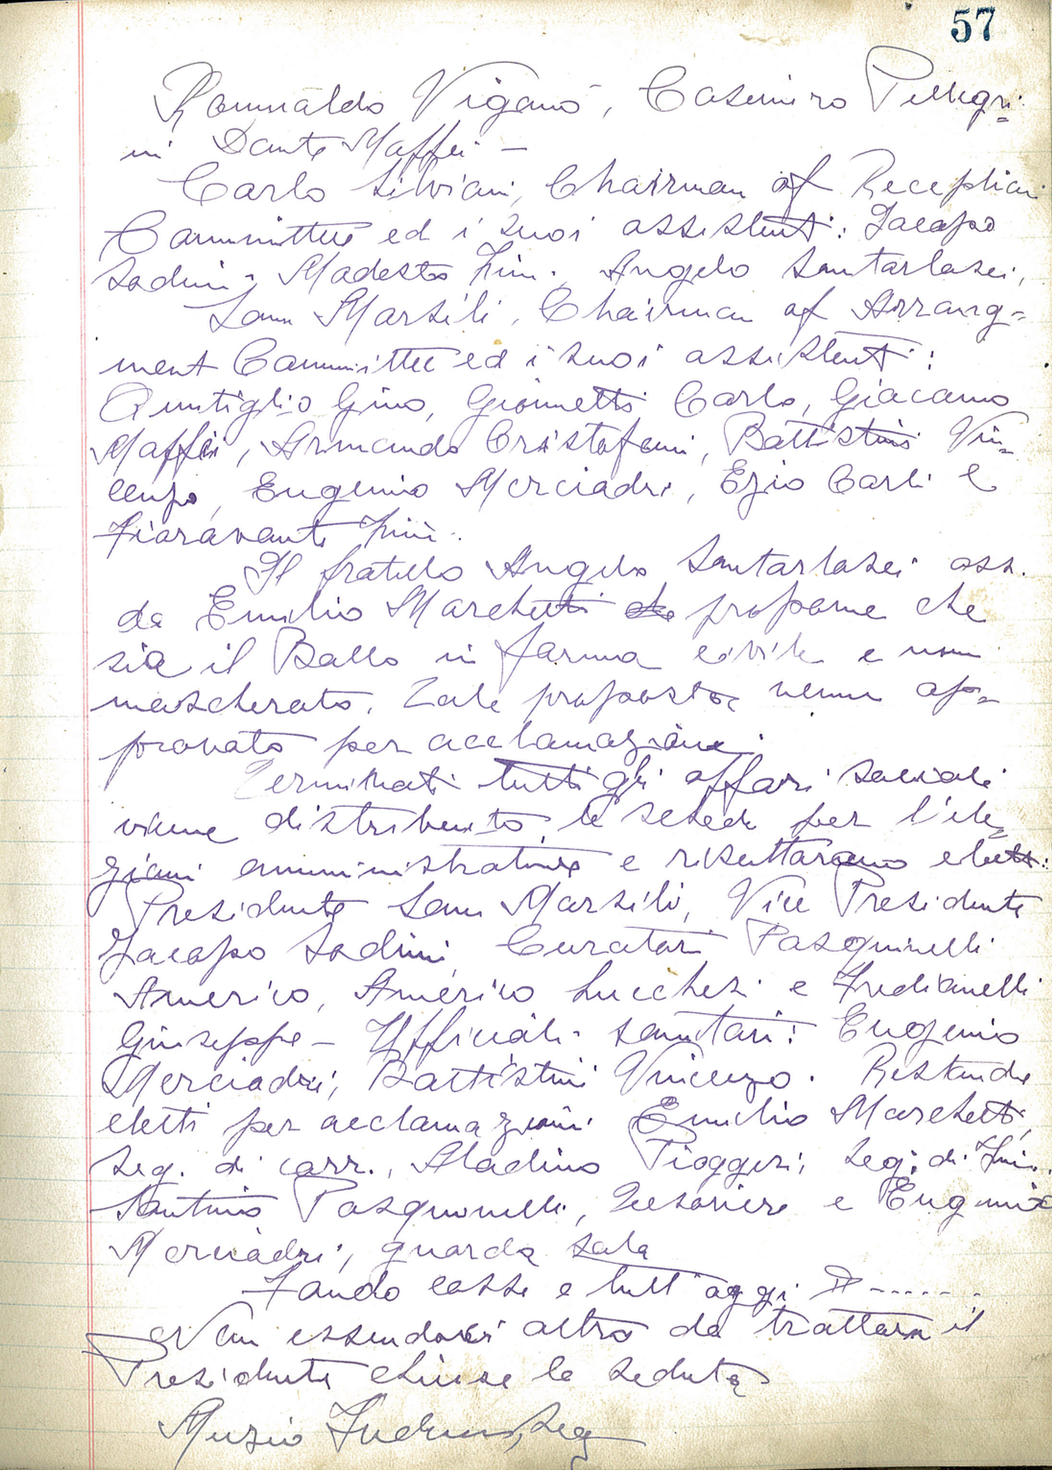 57
Romualdo Viganò, Casimiro Pellegri=
ni Dante Maffei —
Carlo Silviani, Chairman of Reception
Committee ed i suoi assistenti: Jacopo
Sodini, Modesto Fini. Angelo Santarlasci,
Sam Marsili, Chairman of Arrang=
ment Committee ed i suoi assistenti:
Quntiglio Gino, Gionnetti Carlo, Giacomo
Maffei, Armando Cristofani, Battistini Vin=
cenzo, Eugenio Merciadri, Ezio Carli e
Fioravante Fini.
Il fratello Angelo Santarlasci ass.
da Emilio Marchetti propone che
sia il Ballo in forma civile e non
mascherato. Tale proposta venne ap=
provato per acclamazione.
Terminati tutti gli affari sociali
viene distribuito le schede per l'ele=
zioni amministrative e risultarono eletti:
Presidente Sam Marsili, Vice Presidente
Jacopo Sodini, Curatori Pasquinelli
Americo, Americo Lucchesi e Fredianelli
Giuseppe — Ufficiali sanitari: Eugenio
Merciadri, Battistini Vincenzo. Restando
eletti per acclamazioni Emilio Marchetti,
Seg. di corr., Aladino Pioggesi, Seg. di Fin.
Santino Pasquinelli, Tesoriere e Eugenio
Merciadri, guarda sala
Fondo cassa a tutt'oggi $ ------
Non essendovi altro da trattare il
Presidente chiuse la seduta
Muzio Seg